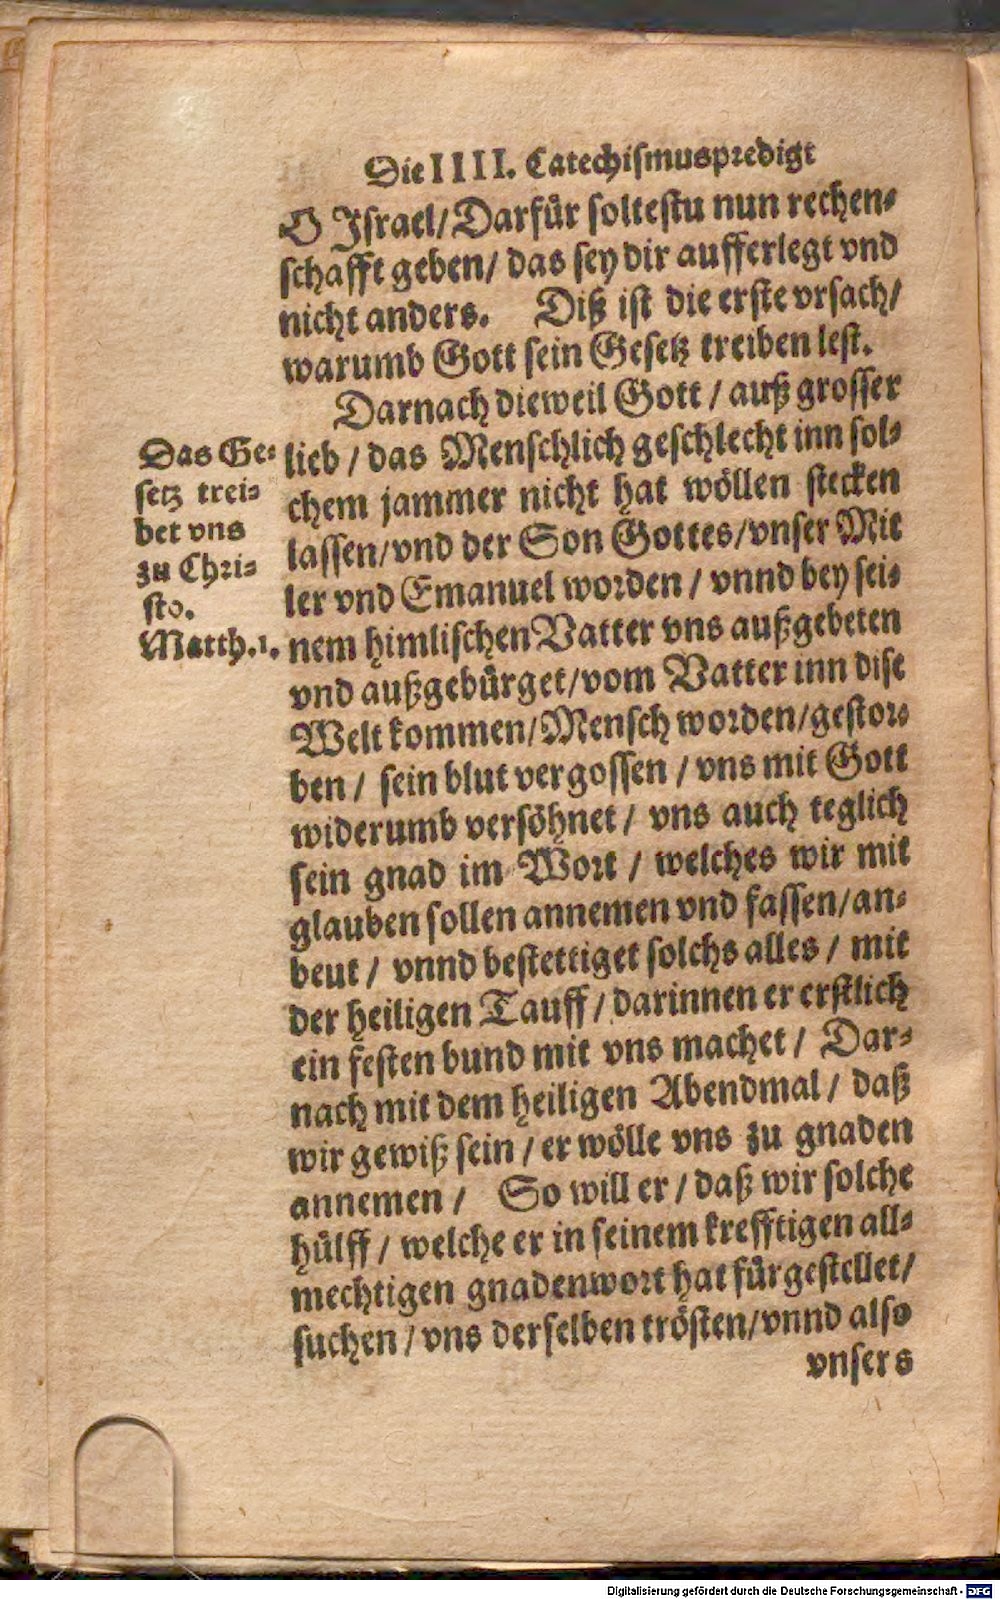 Die IIII. Catechismuspredigt
O Israel/Darfür soltestu nun rechen-
schafft geben/ das sey dir aufferlegt vnd
nicht anders. Diß ist die erste vrsach/
warumb Gott sein Gesetz treiben lest.
Darnach dieweil Gott / auß grosser
lieb / das Menschlich geschlecht inn sol-
chem jammer nicht hat wöllen stecken
lassen/vnd der Son Gottes/vnser Mit
ler vnd Emanuel worden / vnnd bey sei-
nem himlischen Vatter vns außgebeten
vnd außgebürget/vom Vatter inn dise
Welt kommen/Mensch worden/gestor-
ben / sein blut vergossen / vns mit Gott
widerumb versöhnet / vns auch teglich
sein gnad im Wort / welches wir mit
glauben sollen annemen vnd fassen/an-
beut / vnnd bestettiget solchs alles / mit
der heiligen Tauff / darinnen er erstlich
ein festen bund mit vns machet / Dar-
nach mit dem heiligen Abendmal / daß
wir gewiß sein / er wölle vns zu gnaden
annemen / So will er / daß wir solche
hülff / welche er in seinem krefftigen all-
mechtigen gnadenwort hat fürgestellet/
suchen / vns derselben trösten/vnnd also
vnsers
Das Ge-
setz trei-
bet vns
zu Chri-
sto.
Matth.1.
Digitalisierung gefördert durch die Deutsche Forschungsgemeinschaft - DFG